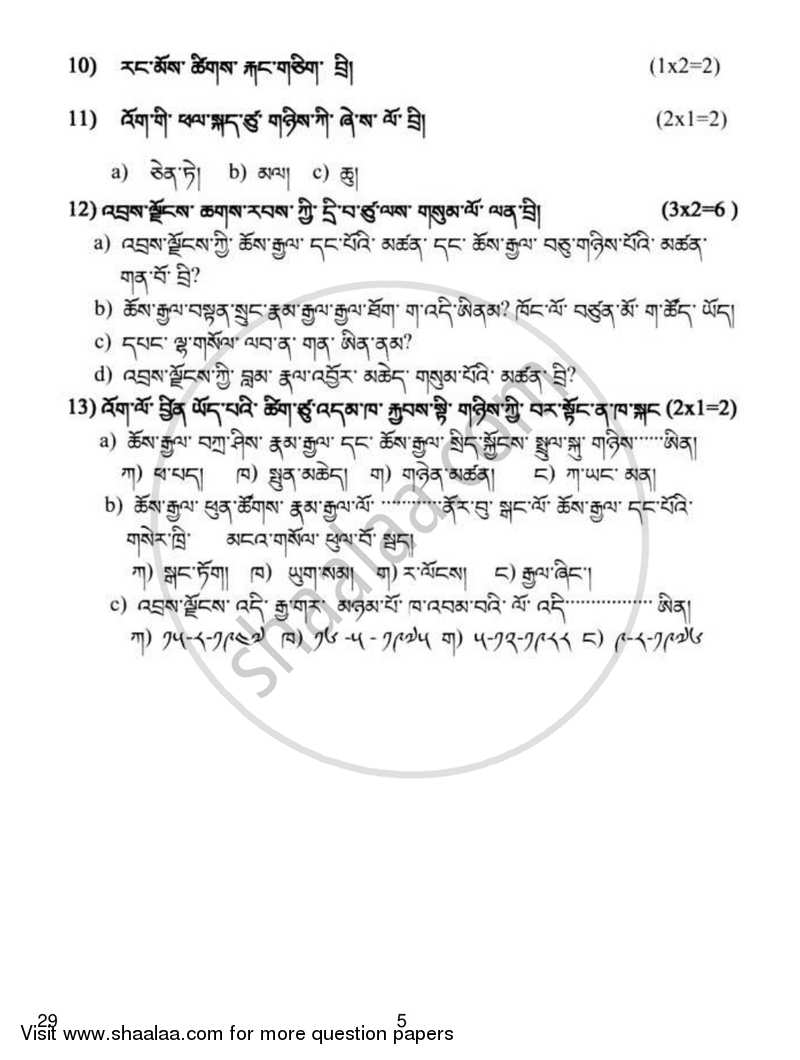 10) རང་མོས་ ཚིགས་ རྐང་གཅིག་ བྲི། (1x2=2)
11) འོག་གི་ ཕལ་སྐད་ཙུ་ གཉིས་ཀི་ ཞེ་ས་ ལོ་ བྲི། (2x1=2)
a) ཅེན་ཏེ། b) མལ། c) ཆུ།
12) འབྲས་ལྗོངས་ ཆགས་རབས་ ཀྱི་ དྲི་བ་ཙུ་ལས་ གསུམ་ལོ་ ལན་བྲི། (3x2=6 )
a) འབྲས་ལྗོངས་ཀྱི་ ཆོས་རྒྱལ་ དང་པོའི་ མཚན་ དང་ ཆོས་རྒྱལ་ བཅུ་གཉིས་པོའི་ མཚན་
གན་བོ་ བྲི?
b) ཆོས་རྒྱལ་བསྟན་སྲུང་རྣམ་རྒྱལ་རྒྱལ་ཐོག་ ག་འདི་ཨིནམ? ཁོང་ལོ་ བཙུན་མོ་ ག་ཚོད་ ཡོད།
c) དཔང་ ལྷ་གསོལ་ ལབ་ན་ གན་ ཨིན་ནམ?
d) འབྲས་ལྗོངས་ཀྱི་ བླམ་ རྣལ་འབྱོར་ མཆེད་ གསུམ་པོའི་ མཚན་ བྲི?
13) འོག་ལོ་ བྱིན་ ཡོད་པའི་ ཚིག་ཙུ་འདམ་ཁ་ རྐྱབས་སྟི་ གཉིས་ཀྱི་ བར་སྟོང་ན་ཁ་སྐང (2x1=2)
a) ཆོས་རྒྱལ་ བཀྲ་ཤིས་ རྣམ་རྒྱལ་ དང་ ཆོས་རྒྱལ་ སྲིད་སྐྱོངས་ སྤྲུལ་སྐུ་ གཉིས་......ཨིན།
ཀ) ཕ་པད། ཁ) སྤུན་མཆེད། ག) གཉེན་མཚན། ང) ཀ་ཡང་ མན།
b) ཆོས་རྒྱལ་ ཕུན་ཚོགས་ རྣམ་རྒྱལ་ལོ་ ............ནོར་བུ་ སྒང་ལོ་ ཆོས་རྒྱལ་ དང་པོའི་
གསེར་ཁྲི་ མངའ་གསོལ་ ཕུལ་བོ་ སྦད།
ཀ) སྒང་ཏོག། ཁ) ཡུག་སམ། ག) ར་ལོངས། ང) རྒྱལ་ཞིང་།
c) འབྲས་ལྗོངས་ འདི་ རྒྱ་གར་ མཉམ་པོ་ ཁ་འབམ་བའི་ ལོ་ འདི་................. ཨིན།
ཀ) ༡༥-༨-༡༩༤༧ ཁ) ༡༦ -༥ - ༡༩༧༥ ག) ༥-༡༢-༡༩༨༨ ང) ༩-༨-༡༩༧༦
shaalaa.com
29
5
Visit www.shaalaa.com for more question papers